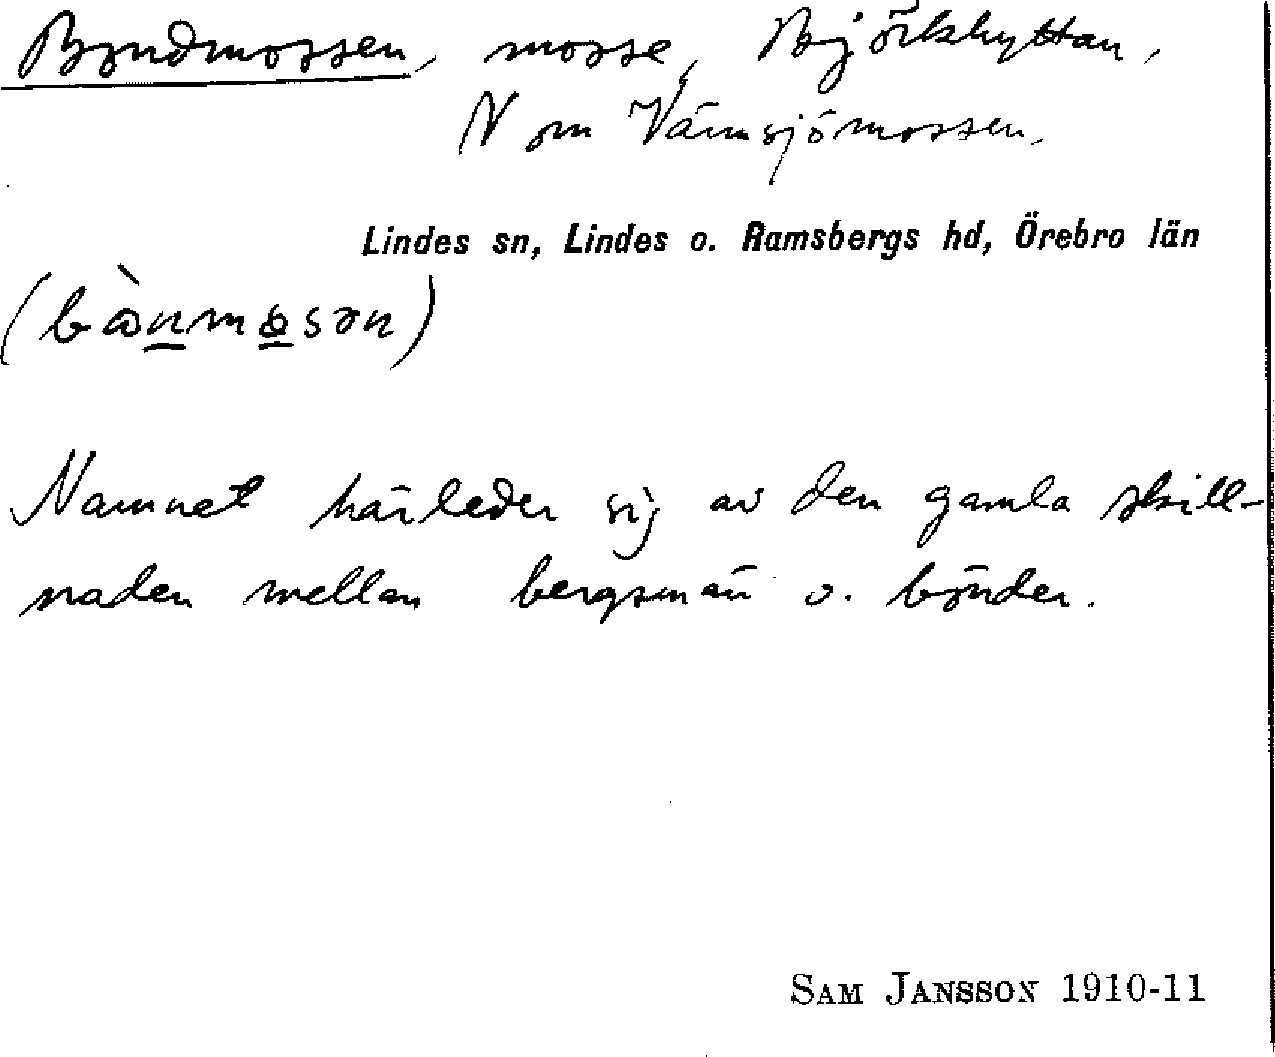 Bondmossen, mosse, Björkhyttan,
N om Värnsjömossen.
Lindes sn, Lindes o. Ramsbergs hd, Örebro län
Namnet härleder sig av den gamla skill-
naden mellan bergsmän o. bönder.
SAM JANSSON 1910-11